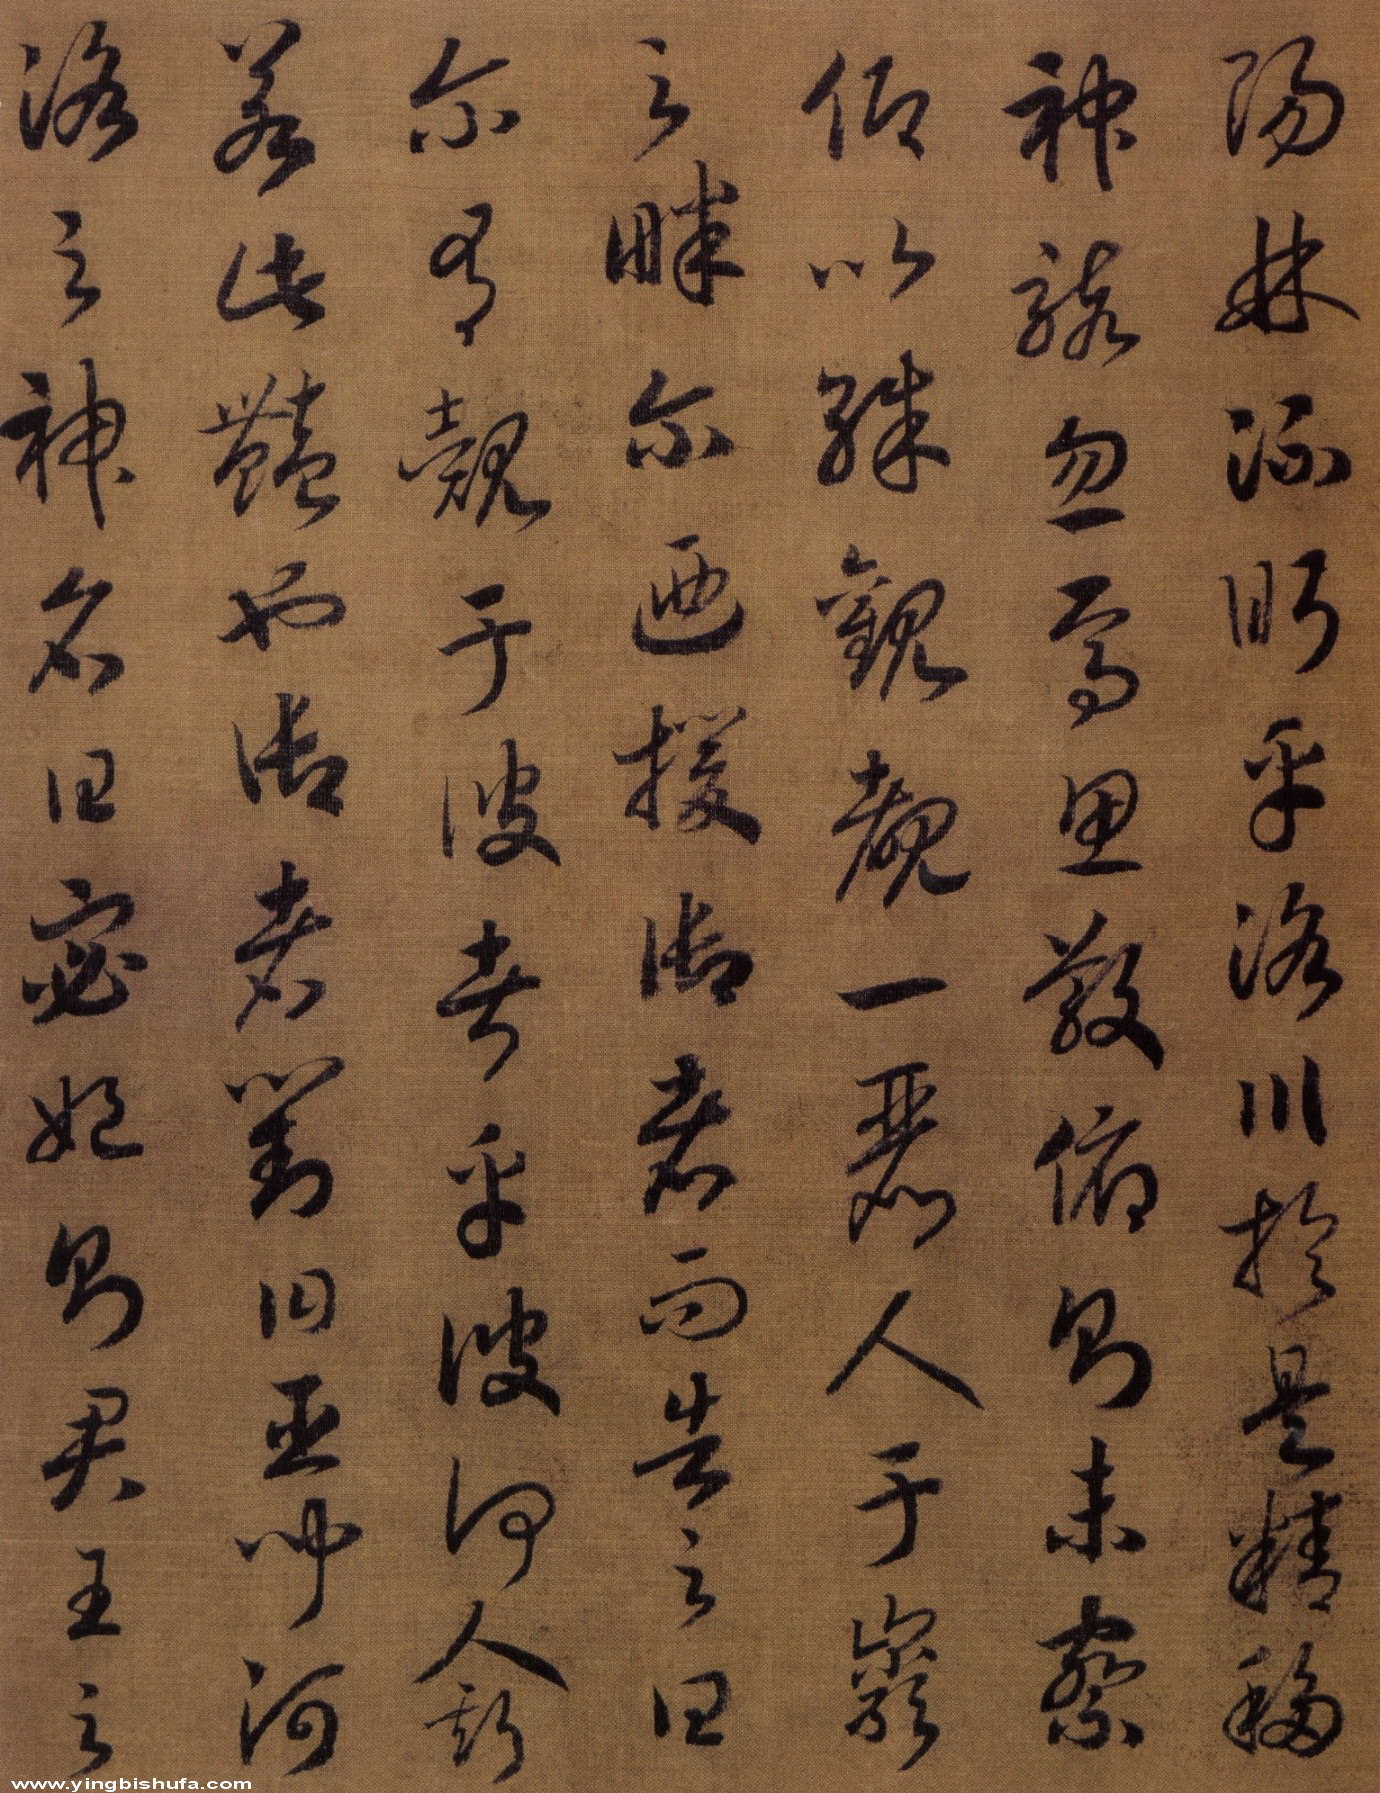 陽林流眄乎洛川於是精移
神駭忽焉思散俯則未察
仰以殊觀覩一麗人于巖
之畔尔迺援御者而告之曰
尔有覿于彼者乎彼何人斯
若此豔也御者對曰臣聞河
洛之神名曰宓妃則君王之
www.yingbishufa.com